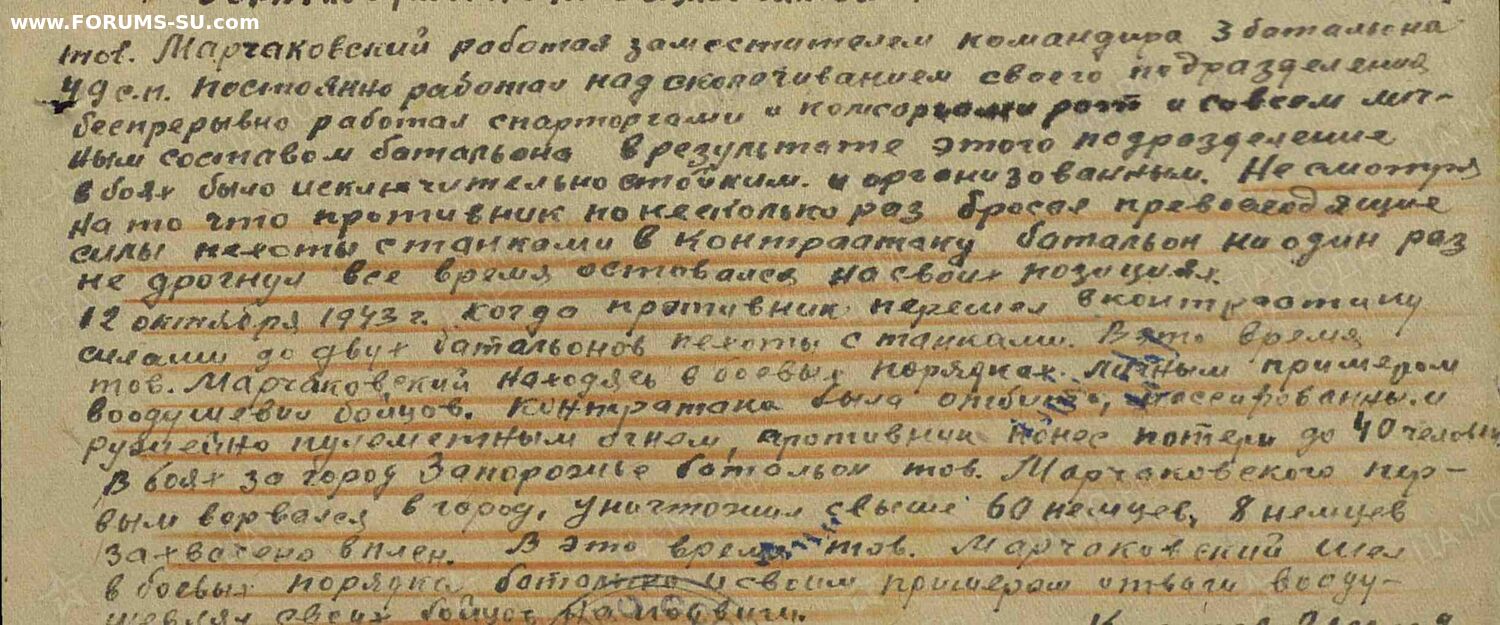 www.FORUMS-SU.com
тов. Марчаковский работая заместителем командира 3 батальона
49 с.п. постоянно работал над сколачиванием своего подразделения
беспрерывно работал спарторгами и комсоргами рот и совсем лич-
ным составом батальона в результате этого подразделение
в боях было исключительно стойким. и организованным. Несмотря
на то что противник по несколько раз бросал превосходящие
силы пехоты с танками в контратаку батальон ни один раз
не дрогнул все время оставался на своих позициях.
12 октября 1943 г. когда противник перешел в контратаку
силами до двух батальонов пехоты с танками. В это время
тов. Марчаковский находясь в боевых порядках личным примером
воодушевил бойцов. Контратака была отбита, массированным
ружейно пулеметным огнем, противник понес потери до 40 человек
В боях за город Запорожье батальон тов. Марчаковского пер-
вым ворвался в город, уничтожил свыше 60 немцев, 8 немцев
захвачено в плен. В это время тов. Марчаковский шел
в боевых порядках батальона и своим примером отваги вооду-
шевлял своих бойцов на подвиги.